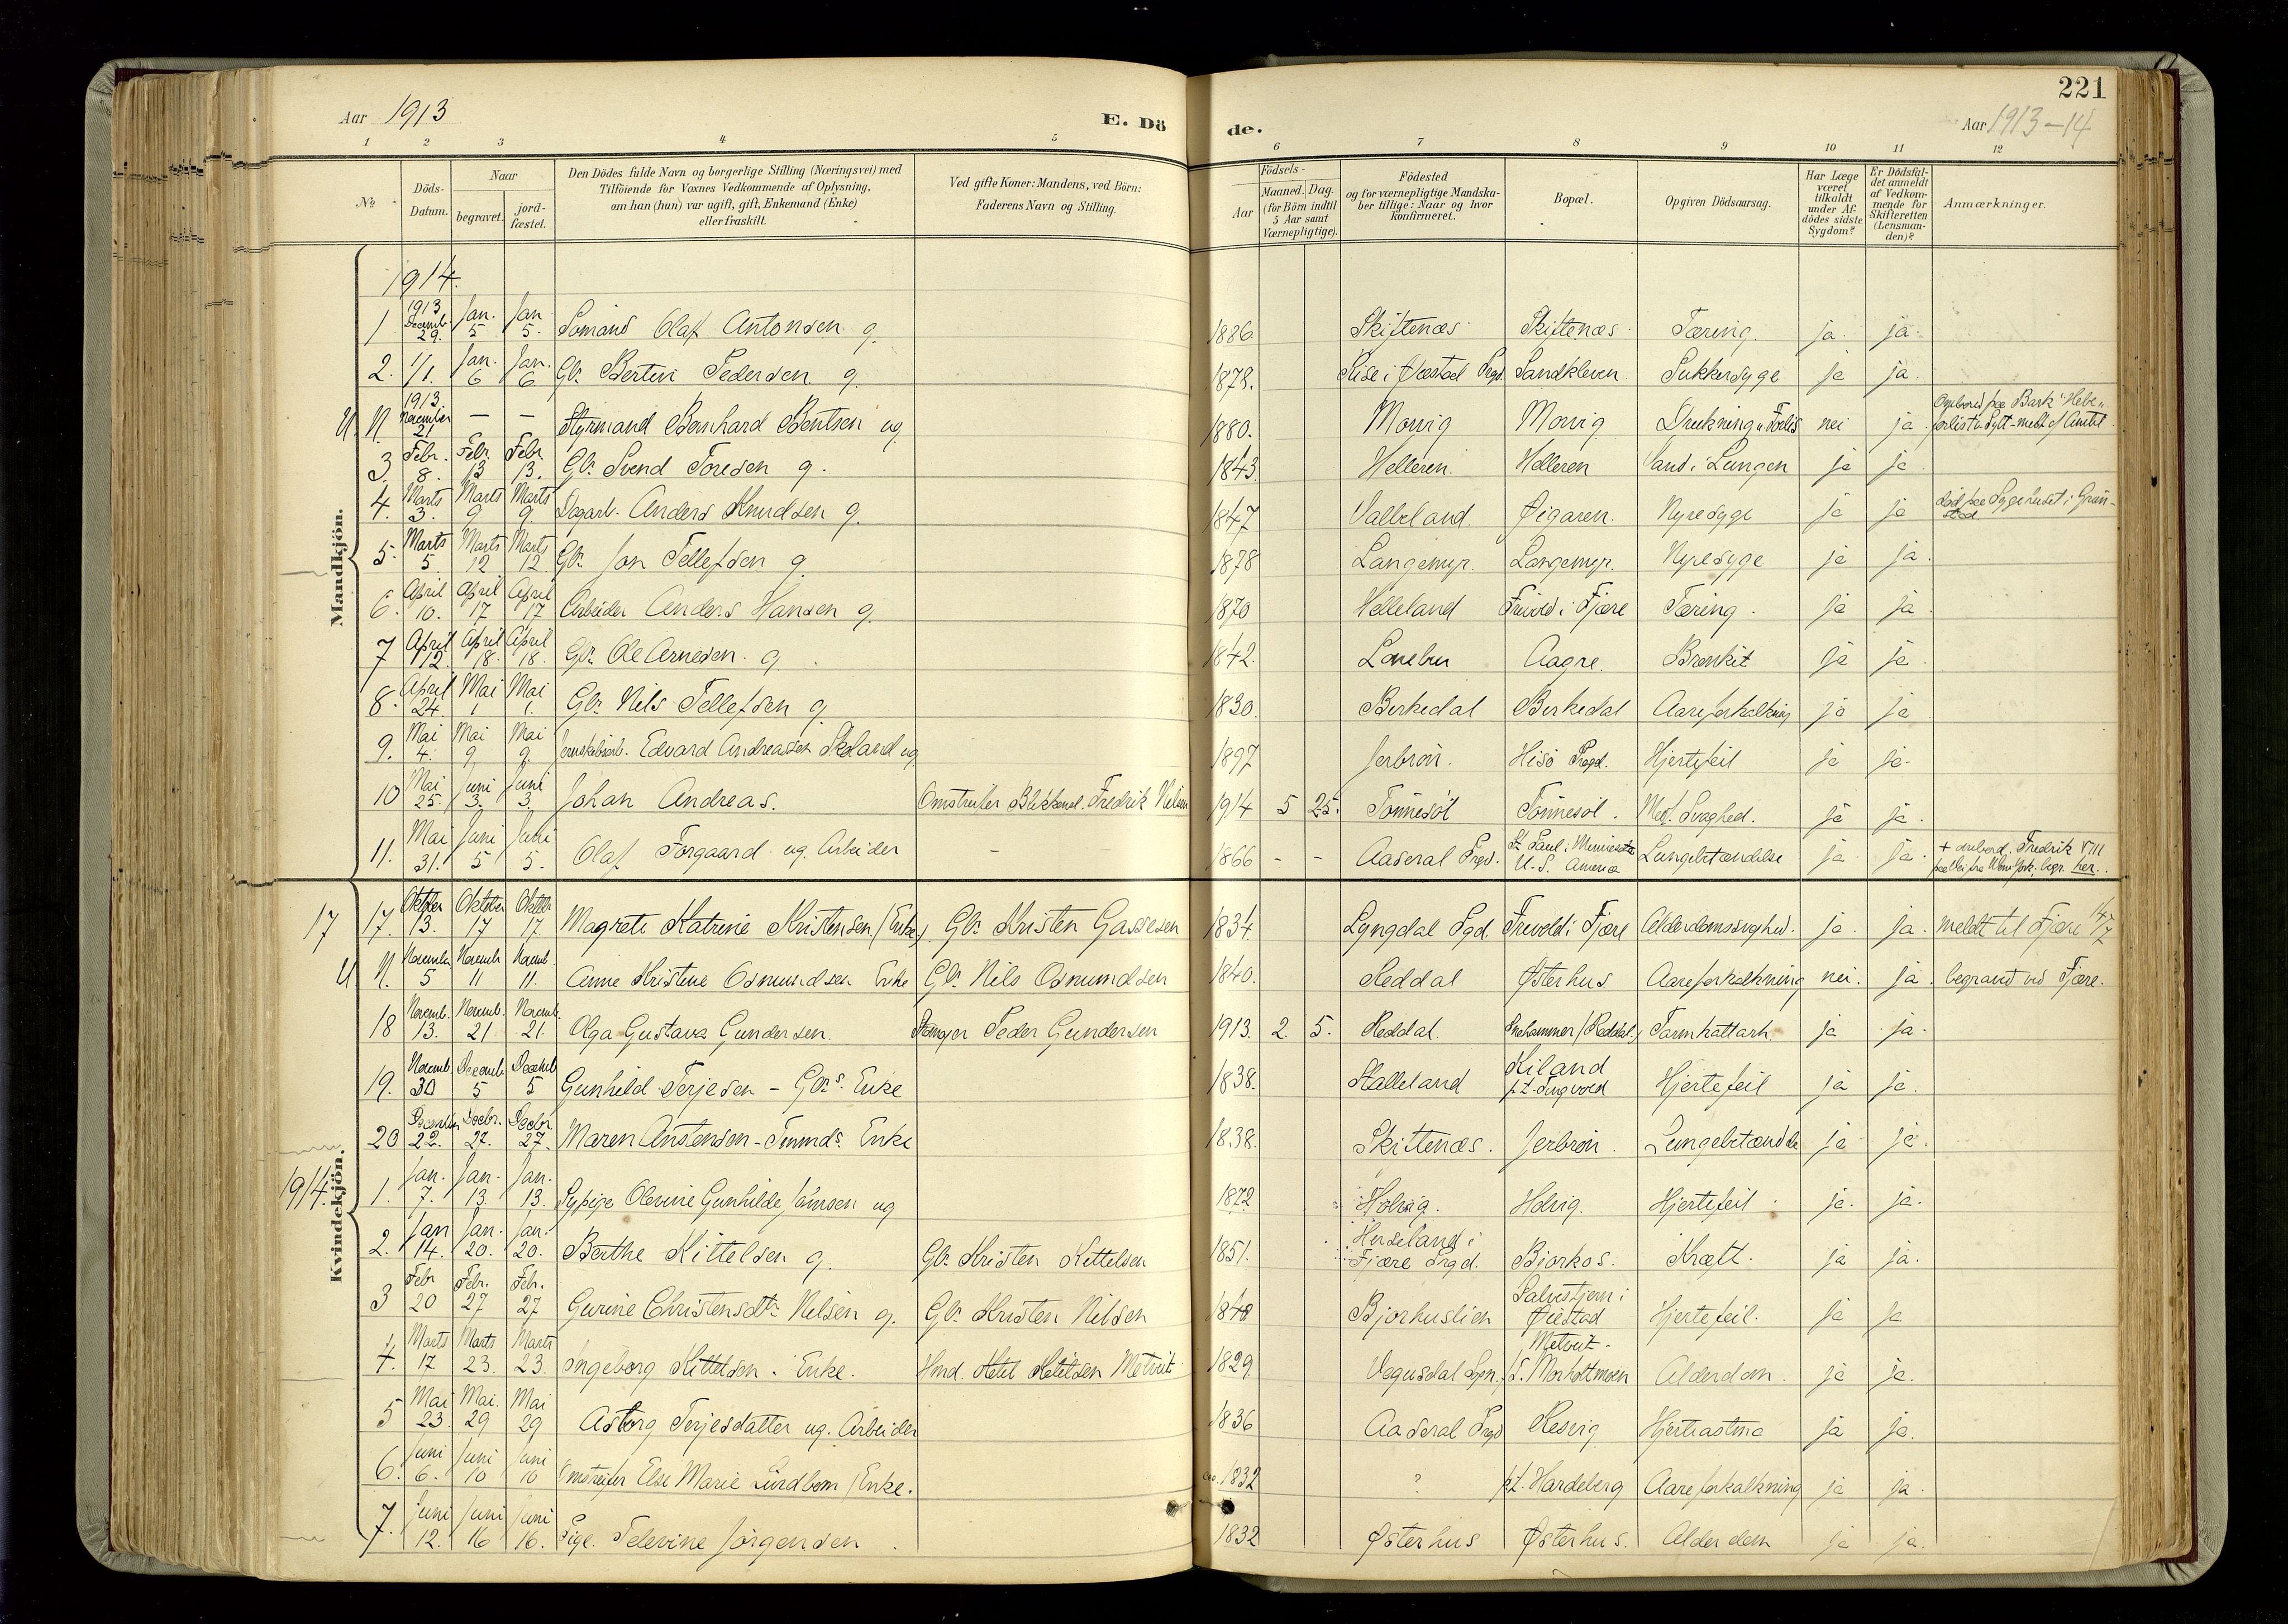 221
Aar 1913
E. Döde.
Aar 1913-14
1 2 3 4 5 6 7 8 9 10 11 12
No
Döds-Datum.
Naar
begravet.
jord-fæstet.
Den Dödes fulde Navn og borgerlige Stilling (Næringsvei) med
Tilföiende for Voxnes Vedkommende af Oplysning,
om han (hun) var ugift, gift, Enkemand (Enke)
eller fraskilt.
Ved gifte Koner: Mandens, ved Börn:
Faderens Navn og Stilling.
Födsels-
Aar
Maaned. Dag.
(for Börn indtil
5 Aar samt
Værnepligtige).
Födested
og for værnepligtige Mandska-
ber tillige: Naar og hvor
Konfirmeret.
Bopæl.
Opgiven Dödsaarsag.
Har Læge
været
tilkaldt
under Af-
dödes sidste
Sygdom?
Er Dödsfal-
det anmeldt
af Vedkom-
mende for
Skifteretten
(Lensman-
den)?
Anmærkninger.
Mandkjön.
1914.
1 1913 Decemb. 29. Jan. 5 Jan 5. Sömand Olaf Antonsen g. 1886. Skiftenæs Skiftenæs Tæring. ja. ja.
2. 1/1. Jan. 6 Jan. 6 Gbr. Bertin Pedersen g. 1878. Rise i Øiestad Prgd. Sandkleven Sukkersyge ja ja.
U. N. 1913. November 21 — — Styrmand Bernhard Bentsen ug 1880. Morvig Morvig Drukning v. Forlis nei ja
3. Febr. 8. Febr. 13 Febr. 13. Gbr. Svend Toresen g. 1843 Helleren. Helleren Vand i Lungen ja ja
4. Marts 3. Marts 9 Marts 9. Dagarb. Anders Knudsen g. 1847 Valbeland. Øigaren. Nyresyge ja ja död paa Sygehuset i Grim-stad
5. Marts 5. Marts 12 Marts 12 Gbr. Jon Tellefsen g 1878 Langemyr. Langemyr. Nyresyge ja ja.
6. April 10. April 17 April 17 Arbeider Anders Hansen g. 1870 Helleland Frivold i Fjære Tæring. ja ja.
7 April 12. April 18. April 18. Gbr. Ole Arnesen. g. 1842. Aagre. Bronkit ja ja.
8. April 24. Mai 1 Mai 1. Gbr. Nils Tellefsen g 1830. Birkedal Birkedal Aareforkalkning ja ja
9. Mai 4. Mai 9 Mai 9. Edvard Andreassen Skeland ug 1897 Jerbron. Hisö Prgd. Hjertefeil ja ja.
10 Mai 25. Juni 3. Juni 3. Johan Andreas. Omstreifer Blikkensl. Fredrik Nilsen 1914 5 25. Tönnesöl Tönnesöl. Medf. Svaghed. ja ja.
11. Mai 31. Juni 5 Juni 5. Olaf Torgaard ug. Arbeider - - 1866 - - Aaseral Prgd. St. Paul i Minnesota U.S. America Lungebetændelse ja ja. + ombord. Fredrik VIII paa Vei fra New York, begr. her.
Kvindekjön.
17 17. Oktober 13. Oktober 17 Oktbr. 17. Magrete Katrine Kristensen (Enke) Gbr. Kristen Gassesen 1834. Lyngdal Pgd. Frevold i Fjære Alderdomssvaghed. ja. ja. meldt til Fjære
U N. November 5 Novemb. 11 Novemb. 11. Anne Kristine Osmundsen Enke Gbr. Nils Osmundsen 1840. Reddal Østerhus Aareforkalkning nei. ja. begravet ved Fjære.
18 Novemb. 13. Novemb. 21 Novemb. 21. Olga Gustava Gundersen. Peder Gundersen 1913. 2. 5. Reddal. Tarmkattarh ja ja.
19. Novemb. 30 Decemb. 5 Decemb. 5 Gunhild Terjesen - Gbrs. Enke 1838. Stalleland Kiland p.t. Tingvold Hjertefeil ja ja.
20 December 22. Decbr. 27. Decbr. 27. Maren Anstensen - Tømmds. Enke 1838. Skiftenæs. Jerbron. Lungebetændelse ja ja.
1914. 1. Jan. 7. Jan. 13. Jan. 13. Sypige Olevine Gunhilde Jönsen ug 1872 Holvig. Holvig. Hjertefeil ja. ja.
2. Jan 14. Jan. 20. Jan. 20. Berthe Kittelsen g. Gbr. Kristen Kittelsen 1851. Herseland i Fjære Prgd. Biorkos. Kræft. ja ja.
3 Febr 20 Febr. 27 Febr. 27 Gurine Christensdtr Nilsen g. Gbr. Kristen Nilsen 1848 Bjorhuslien Salvestjern i Øiestad Hjertefeil. ja ja
4. Marts 17 Marts 23. Marts 23. Ingeborg Kittelsen. Enke. Hmd. Ketil Ketilsen Metveit 1829 Vegusdal Sogn. Metveit - p.t. Morholtmoen Alderdom. ja ja.
5 Mai 23. Mai. 29 Mai 29 Astorg Terjesdatter ug. Arbeider 1836 Aaseral Prgd Resvig Hjerteastma ja ja.
6. Juni 6. Juni 10 Juni 10 Omstreifer Else Marie Lindbom (Enke. ca. 1832 ? p.t. Hardeberg Aareforkalkning ja ja.
7. Juni 12. Juni 16 Juni 16. Pige. Televine Jörgensen. 1832 Østerhus Østerhus. Alderdom ja ja.